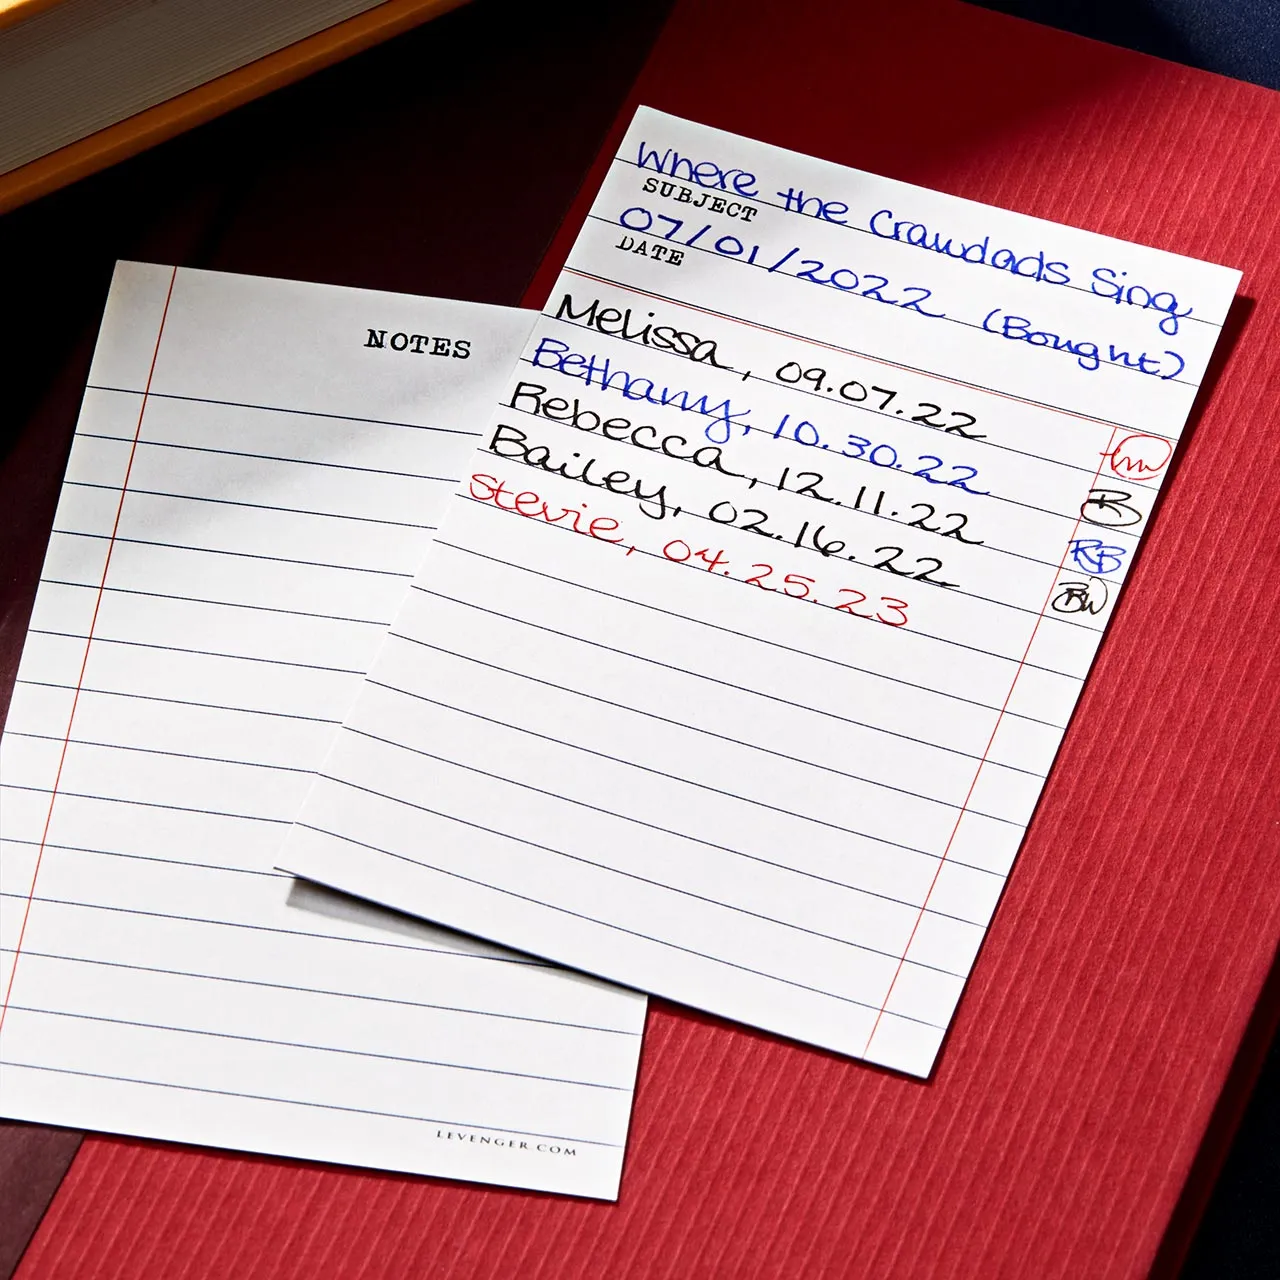 Where the Crawdads Sing
SUBJECT
07/01/2022 (Bought)
DATE
Melissa, 09.07.22
Bethany, 10.30.22
Rebecca, 12.11.22
Bailey, 02.16.22
RB
Stevie, 04.25.23
BW
NOTES
LEVENGER.COM